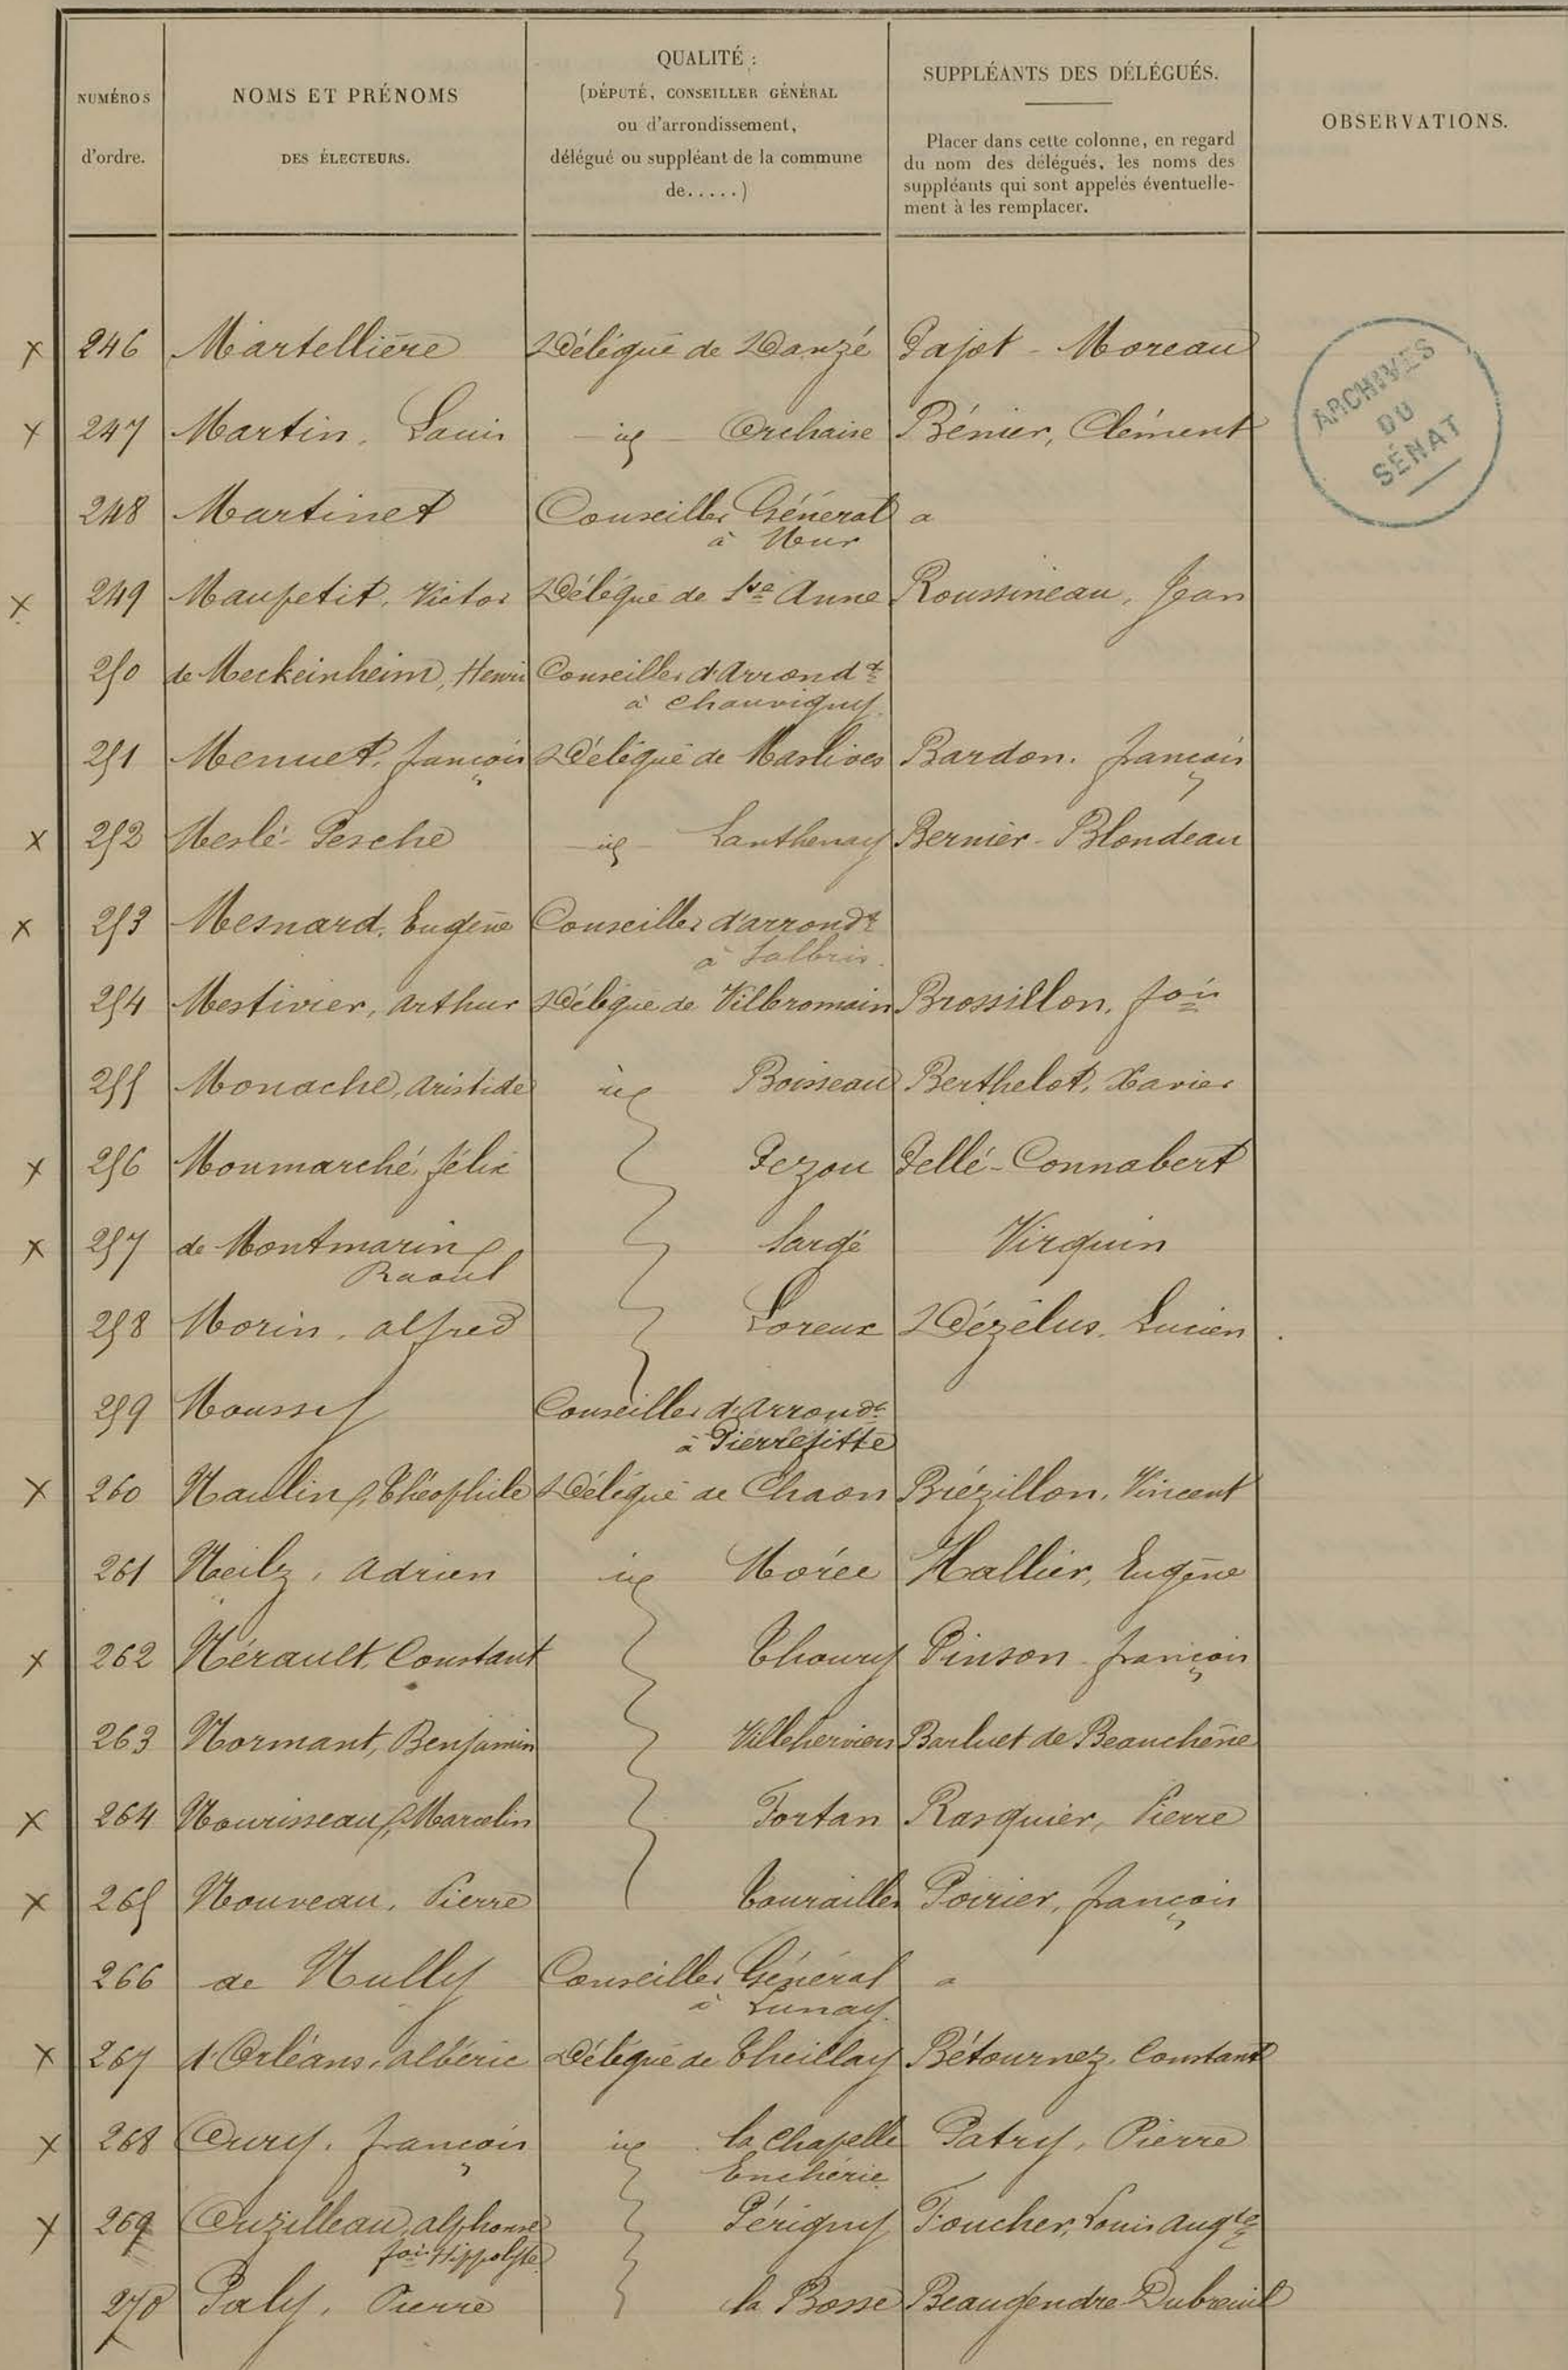 NUMÉROS d'ordre.
NOMS ET PRÉNOMS DES ÉLECTEURS.
QUALITÉ :
(DÉPUTÉ, CONSEILLER GÉNÉRAL
ou d'arrondissement,
délégué ou suppléant de la commune
de.....)
SUPPLÉANTS DES DÉLÉGUÉS.
Placer dans cette colonne, en regard
du nom des délégués, les noms des
suppléants qui sont appelés éventuelle-
ment à les remplacer.
OBSERVATIONS.
ARCHIVES
DU
SÉNAT
x 246 Martellière Délégué de Danzé Pajot - Moreau
x 247 Martin, Louis - id - Orchaise Bénier, Clément
248 Martinet Conseiller Général "
à Mur
x 249 Maupetit, Victor Délégué de Ste Anne Roussineau, Jean
250 de Meckeinheim, Henri Conseiller d'Arrondt
à Chauvigny
251 Menuet, françois Délégué de Maslives Bardon, françois
x 252 Meslé-Pesche - id - Lanthenay Bernier-Blondeau
x 253 Mesnard, Eugène Conseiller d'arrondt
à Salbris.
254 Mestivier, Arthur Délégué de Villeromain Brossillon, fois
255 Monache, Aristide id Boisseau Berthelot, Xavier
x 256 Monmarché, félix Pezou Pellé-Connabert
x 257 de Montmarin Sargé Virguin
Raoul
258 Morin, Alfred Loreux Dézélus, Lucien
259 Moussy Conseiller d'Arrondt
à Pierrefitte
x 260 Naulin, Théophile Délégué de Chaon Brézillon, Vincent
261 Neilz, Adrien id Morée Hallier, Eugène
x 262 Nérault, Constant Thoury Pinson françois
263 Normant, Benjamin Villeherviers Barluet de Beauchêne
x 264 Nourisseau, Marcelin Fortan Rasquier, Pierre
x 265 Nouveau, Pierre Tourailles Poirier, françois
266 de Nully Conseiller Général "
à Lunay.
x 267 d'Orléans, Albéric Délégué de Theillay Bétournez, Constant
x 268 Oury, françois id la Chapelle Patry, Pierre
Enchérie
x 269 Ouzilleau, Alphonse Périgny Foucher, Louis Augte
fois Hippolyte
270 Paly, Pierre la Bosse Beaugendre-Dubreuil